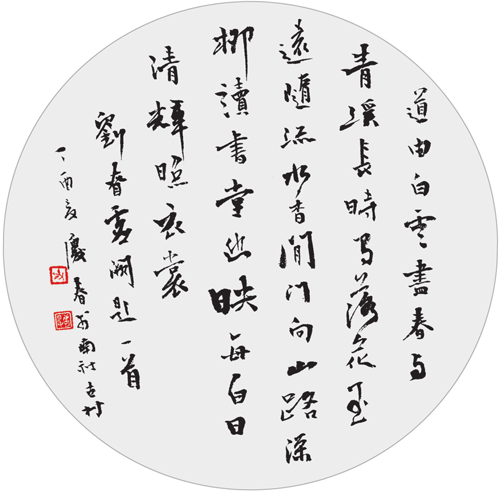 道由白雲盡春与
青溪長時有落花至
遠隨流水香閒门向山路深
柳讀书堂幽映每白日
清輝照衣裳
劉昚虛闕題一首
丁酉夏慶春於南社古村